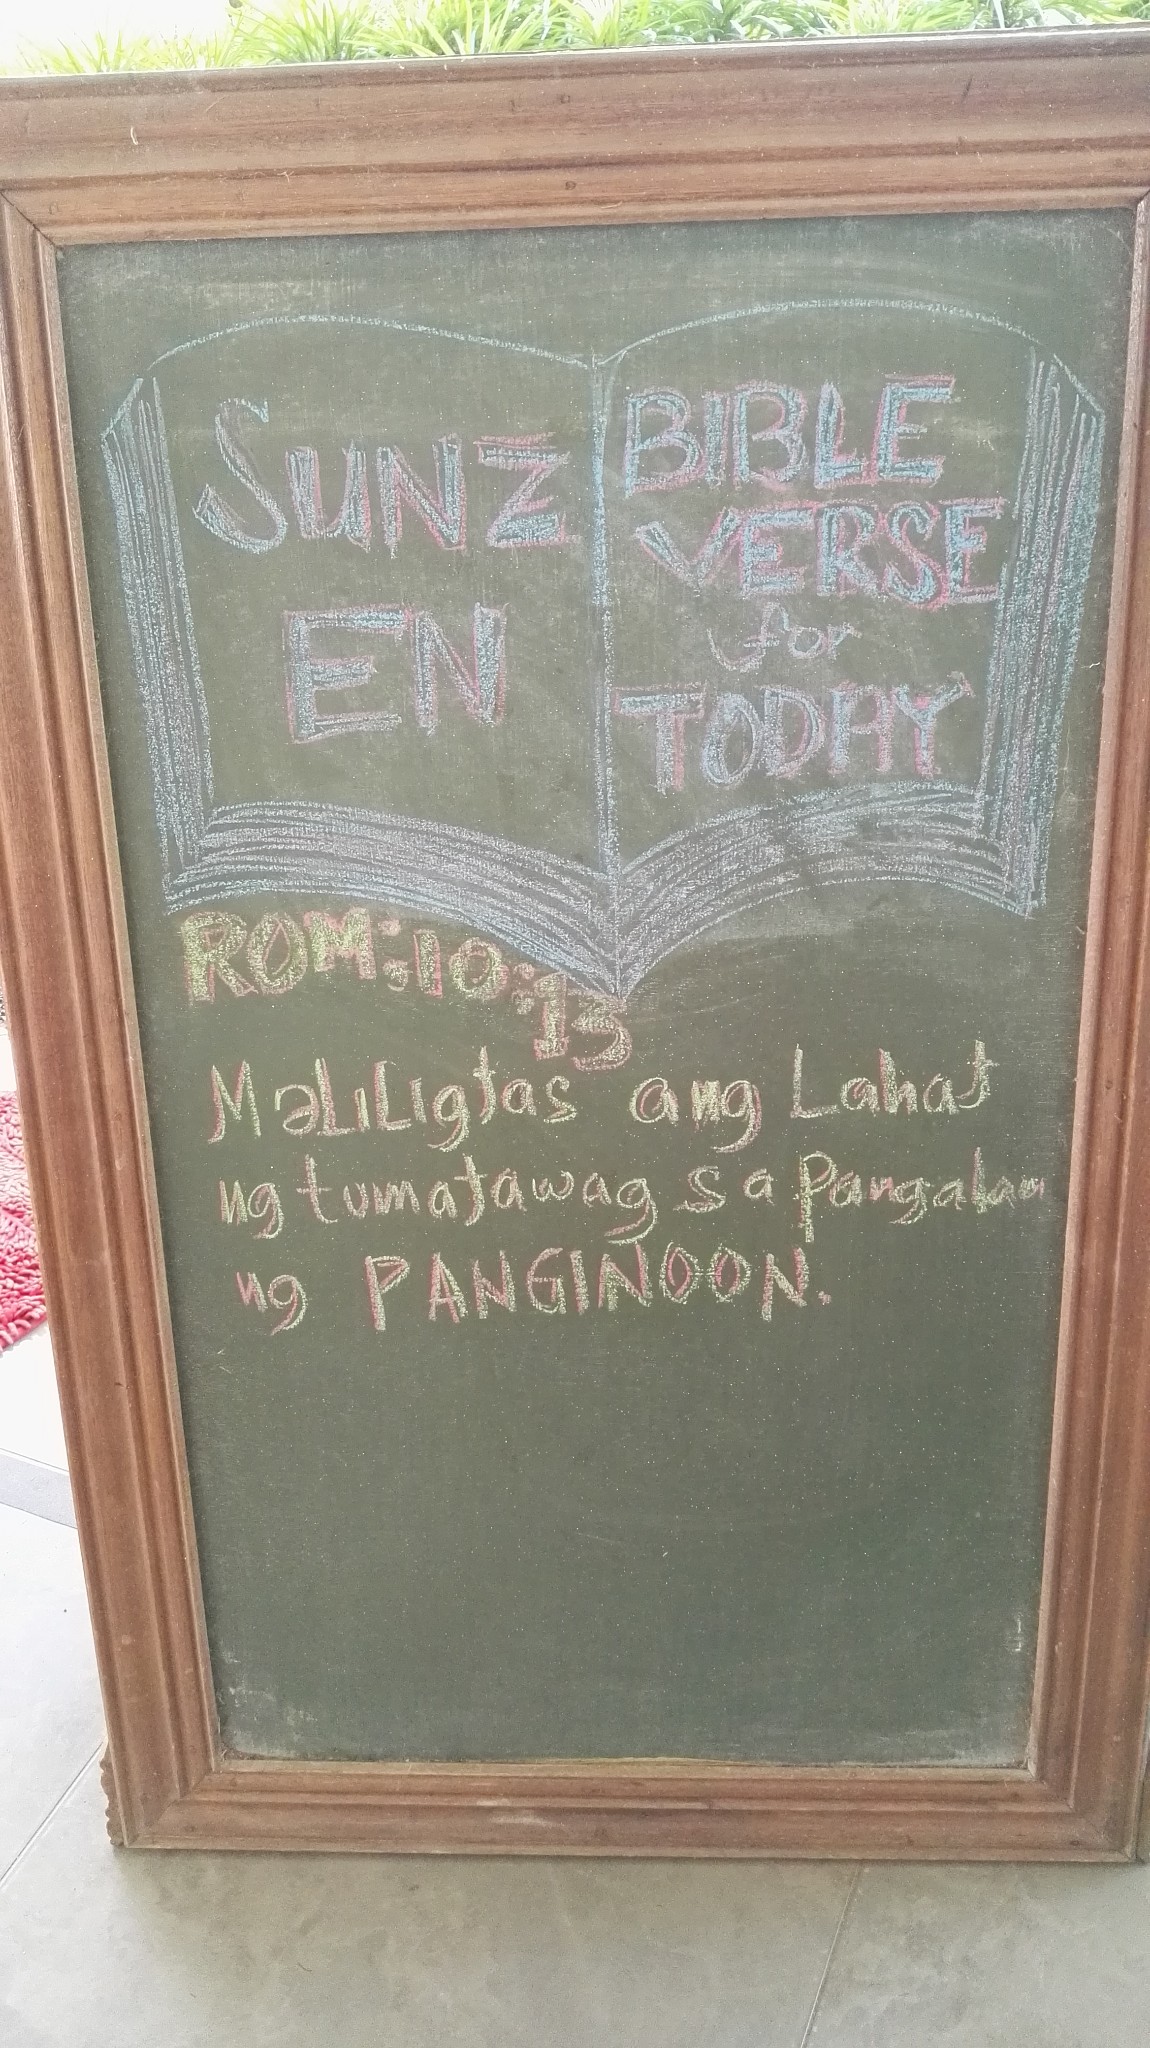 SUNZ
EN
BIBLE
VERSE
for
TODAY
ROM:10:13
Maliligtas ang Lahat
ng tumatawag sa Pangalan
ng PANGINOON.